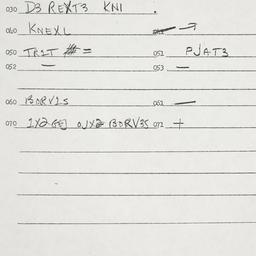 030 D3 REXT3 KNI .
040 KNEXL →
050 TR1T # = 051 PJAT3
052 — 053 —
060 BORV1S 061 —
070 1X2 OJX2 BORV3S 071 +